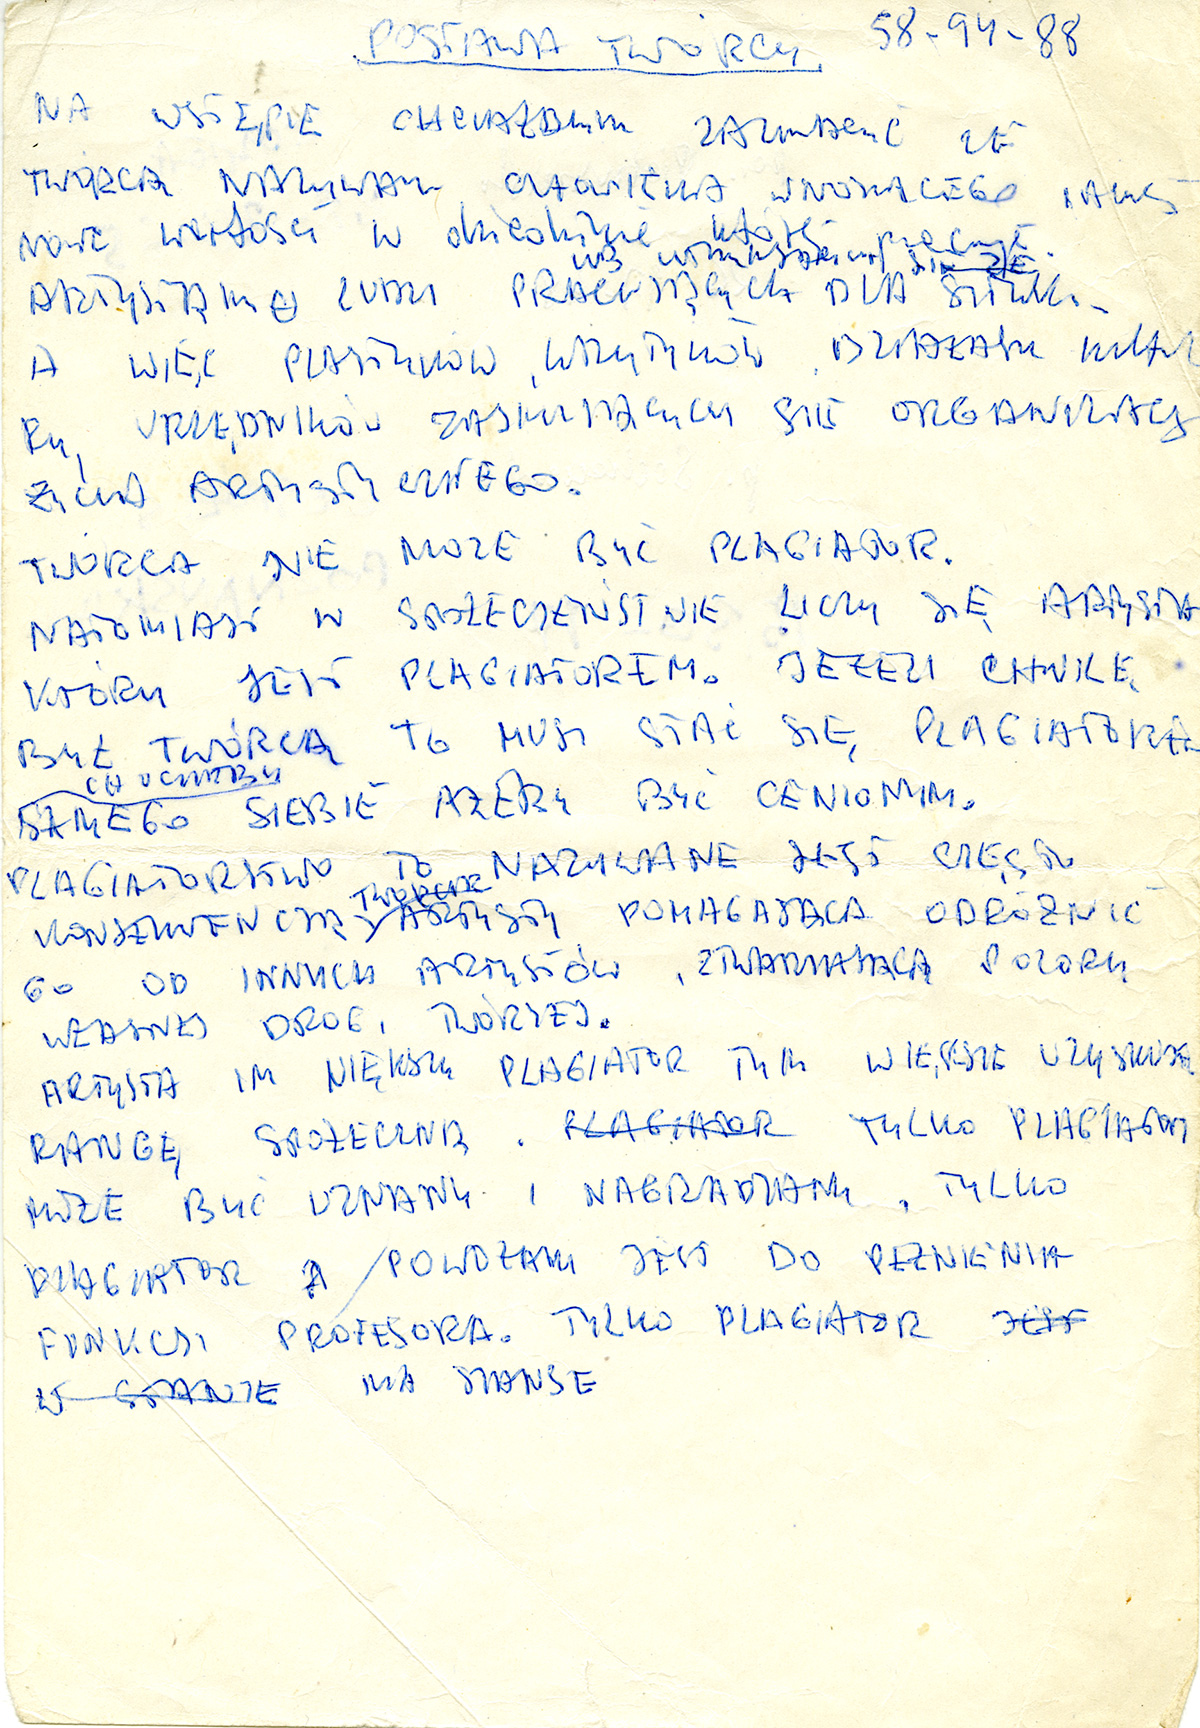 POSTAWA TWÓRCY. 58-94-88
NA WSTĘPIE CHCIAŁBYM ZAZNACZYĆ ŻE
TWÓRCĄ NAZYWAM CZŁOWIEKA WNOSZĄCEGO JAKIEŚ
NOWE WARTOŚCI W dziedzinie której pracuje.
ARTYSTAMI LUDZI PRACUJĄCYCH DLA SZTUKI
A WIĘC PLASTYKÓW, KRYTYKÓW, DZIAŁACZY KULTU
RY, URZĘDNIKÓW ZAJMUJĄCYCH SIĘ ORGANIZACJĄ
ŻYCIA ARTYSTYCZNEGO.
TWÓRCA NIE MOŻE BYĆ PLAGIATOR.
NATOMIAST W SPOŁECZEŃSTWIE LICZY SIĘ ARTYSTA
KTÓRY JEST PLAGIATOREM. JEŻELI CHWILĘ
BYŁ TWÓRCĄ TO MUSI STAĆ SIĘ PLAGIATOREM
CHOCIAŻBY
SAMEGO SIEBIE AŻEBY BYĆ CENIONYM.
PLAGIATORSTWO TO NAZYWANE JEST CZĘSTO
TWÓRCZĄ
KONSEKWENCJĄ ARTYSTY POMAGAJĄCA ODRÓŻNIĆ
GO OD INNYCH ARTYSTÓW, STWARZAJĄCĄ POZORY
WŁASNEJ DROGI TWÓRSZEJ.
ARTYSTA IM WIĘKSZY PLAGIATOR TYM WIĘKSZE UZYSKUJE
RANGĘ SPOŁECZNĄ. PLAGIATOR TYLKO PLAGIATOR
MOŻE BYĆ UZNANY I NAGRADZANY, TYLKO
PLAGIATOR POWOŁANY JEST DO PEŁNIENIA
FUNKCJI PROFESORA. TYLKO PLAGIATOR JEST
W STANIE MA SZANSE